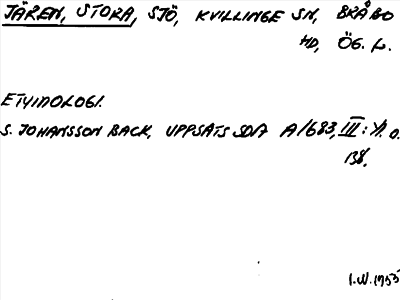 JÄREN, STORA, SJÖ, KVILLINGE SN, BRÅBO
HD, ÖG. L.
ETYMOLOGI.
S. JOHANSSON BACK, UPPSATS SOM A/683, III: s. o.
138.
I.W. 1955